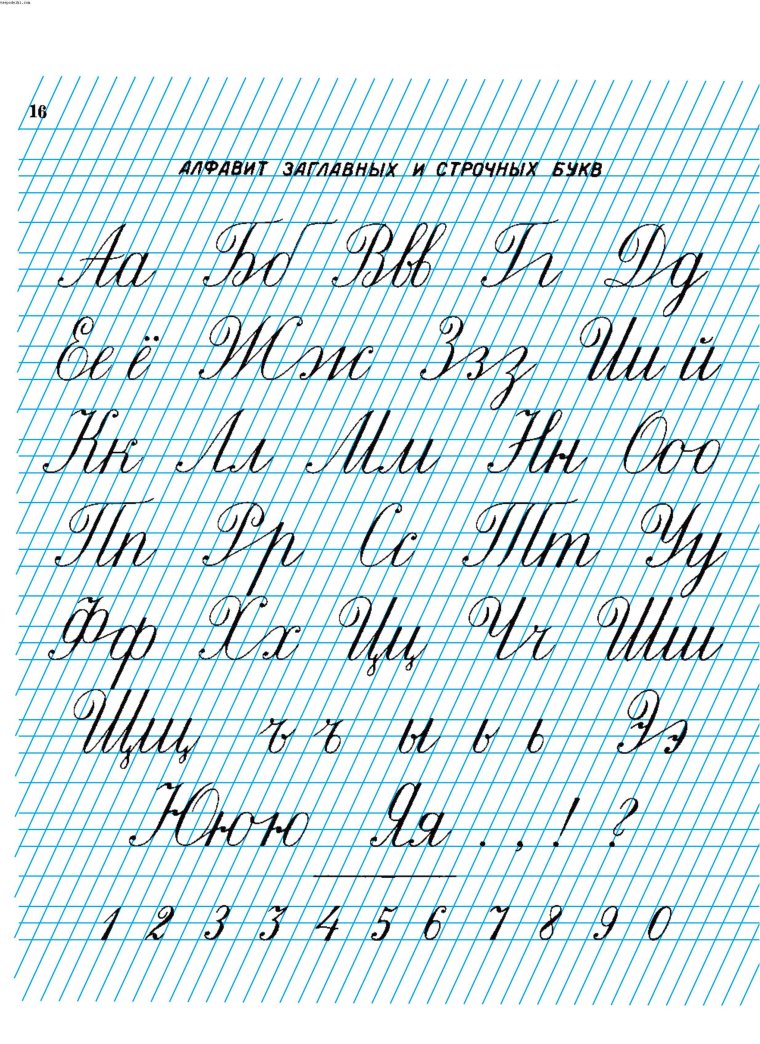 16
АЛФАВИТ ЗАГЛАВНЫХ И СТРОЧНЫХ БУКВ
Аа Бб Ввв Гг Дд
Ее ё Жж Ззз Ии й
Кк Лл Мм Нн Ооо
Пп Рр Сс Тт Уу
Фф Хх Цц Чч Шш
Щщ ъ ъ ы ь ь Ээ
Ююю Яя . , ! ?
1 2 3 3 4 5 6 7 8 9 0